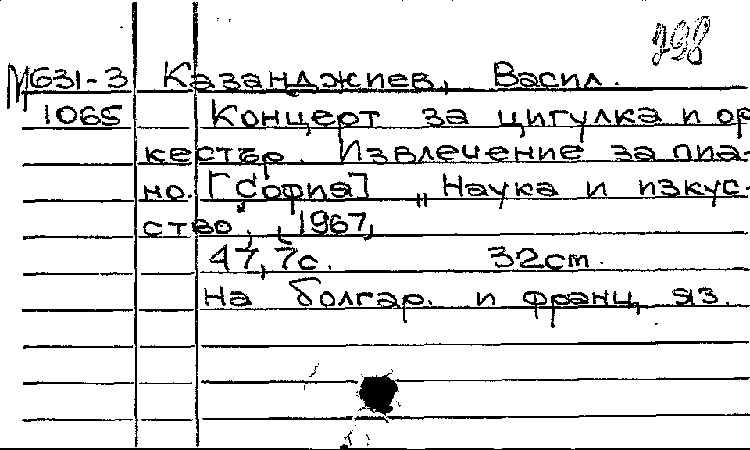 798
М631-3 Казанджиев, Васил.
1065 Концерт за цигулка и ор
кестър. Извлечение за пиа-
но. [София] „Наука и изкус-
ство", 1967,
47, 7с. 32см.
На болгар. и франц, яз.